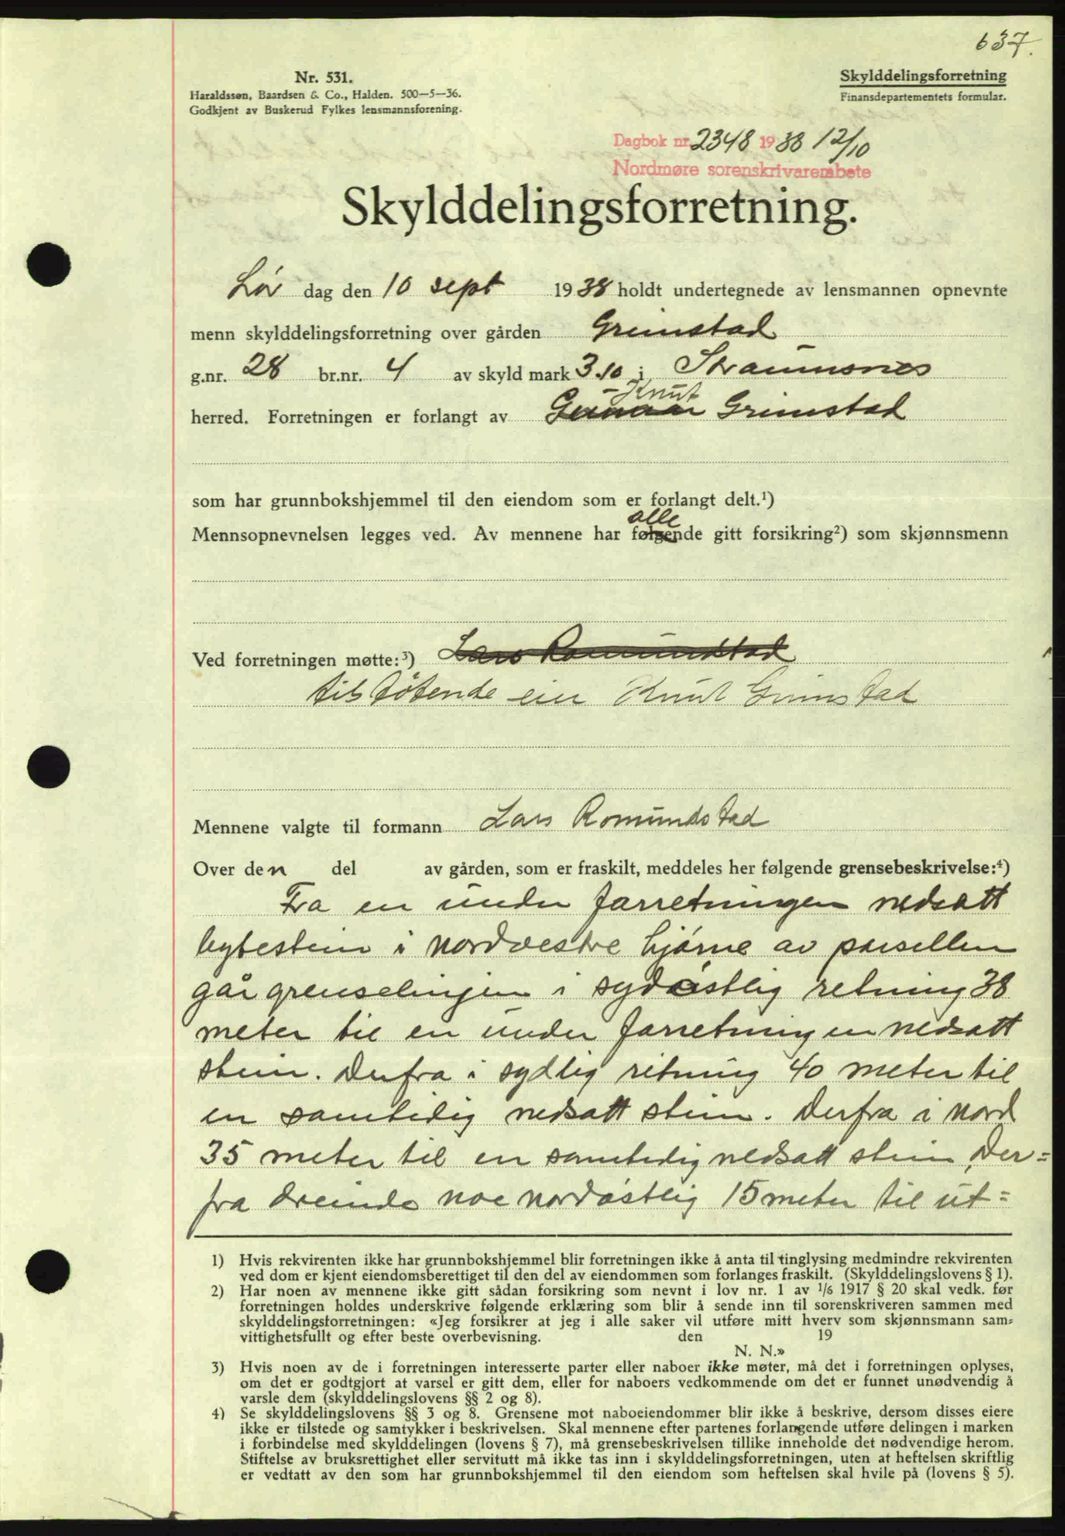 637.
Nr. 531.
Haraldssøn, Baardsen & Co., Halden. 500—5—36.
Godkjent av Buskerud Fylkes lensmannsforening.
Skylddelingsforretning
Finansdepartementets formular.
Dagbok nr. 2348 1938 12/10
Nordmøre sorenskrivarembete
Skylddelingsforretning.
Lør dag den 10 sept 1938 holdt undertegnede av lensmannen opnevnte
menn skylddelingsforretning over gården Grimstad
g.nr. 28 br.nr. 4 av skyld mark 3.10 i Straumsnes
Knut
herred. Forretningen er forlangt av Gunnar Grimstad
som har grunnbokshjemmel til den eiendom som er forlangt delt.¹)
alle
Mennsopnevnelsen legges ved. Av mennene har følgende gitt forsikring²) som skjønnsmenn
Ved forretningen møtte:³) Lars Romundstad
tilstøtende eier Knut Grimstad
Mennene valgte til formann Lars Romundstad
Over den del av gården, som er fraskilt, meddeles her følgende grensebeskrivelse:⁴)
Fra en under forretningen nedsatt
bytestein i nordvestre hjørne av parsellen
går grenselinjen i sydøstlig retning 38
meter til en under forretningen nedsatt
stein. Derfra i sydlig retning 40 meter til
en samtidig nedsatt stein. Derfra i nord
35 meter til en samtidig nedsatt stein, Der=
fra dreinde noe nordøstlig 15 meter til ut=
1) Hvis rekvirenten ikke har grunnbokshjemmel blir forretningen ikke å anta til tinglysing medmindre rekvirenten
ved dom er kjent eiendomsberettiget til den del av eiendommen som forlanges fraskilt. (Skylddelingslovens § 1).
2) Har noen av mennene ikke gitt sådan forsikring som nevnt i lov nr. 1 av 1/6 1917 § 20 skal vedk. før
forretningen holdes underskrive følgende erklæring som blir å sende inn til sorenskriveren sammen med
skylddelingsforretningen: «Jeg forsikrer at jeg i alle saker vil utføre mitt hverv som skjønnsmann sam=
vittighetsfullt og efter beste overbevisning. den 19
N. N.»
3) Hvis noen av de i forretningen interesserte parter eller naboer ikke møter, må det i forretningen oplyses,
om det er godtgjort at varsel er gitt dem, eller for naboers vedkommende om det er funnet unødvendig å
varsle dem (skylddelingslovens §§ 2 og 8).
4) Se skylddelingslovens §§ 3 og 8. Grensene mot naboeiendommer blir ikke å beskrive, dersom disses eiere
ikke er tilstede og samtykker i beskrivelsen. Skal mennene efter partenes forlangende utføre delingen i marken
i forbindelse med skylddelingen (lovens § 7), må grensebeskrivelsen tillike inneholde det nødvendige herom.
Stiftelse av bruksrettighet eller servitutt må ikke tas inn i skylddelingsforretningen, uten at heftelsen skriftlig
er vedtatt av den som har grunnbokshjemmel til den eiendom som heftelsen skal hvile på (lovens § 5).